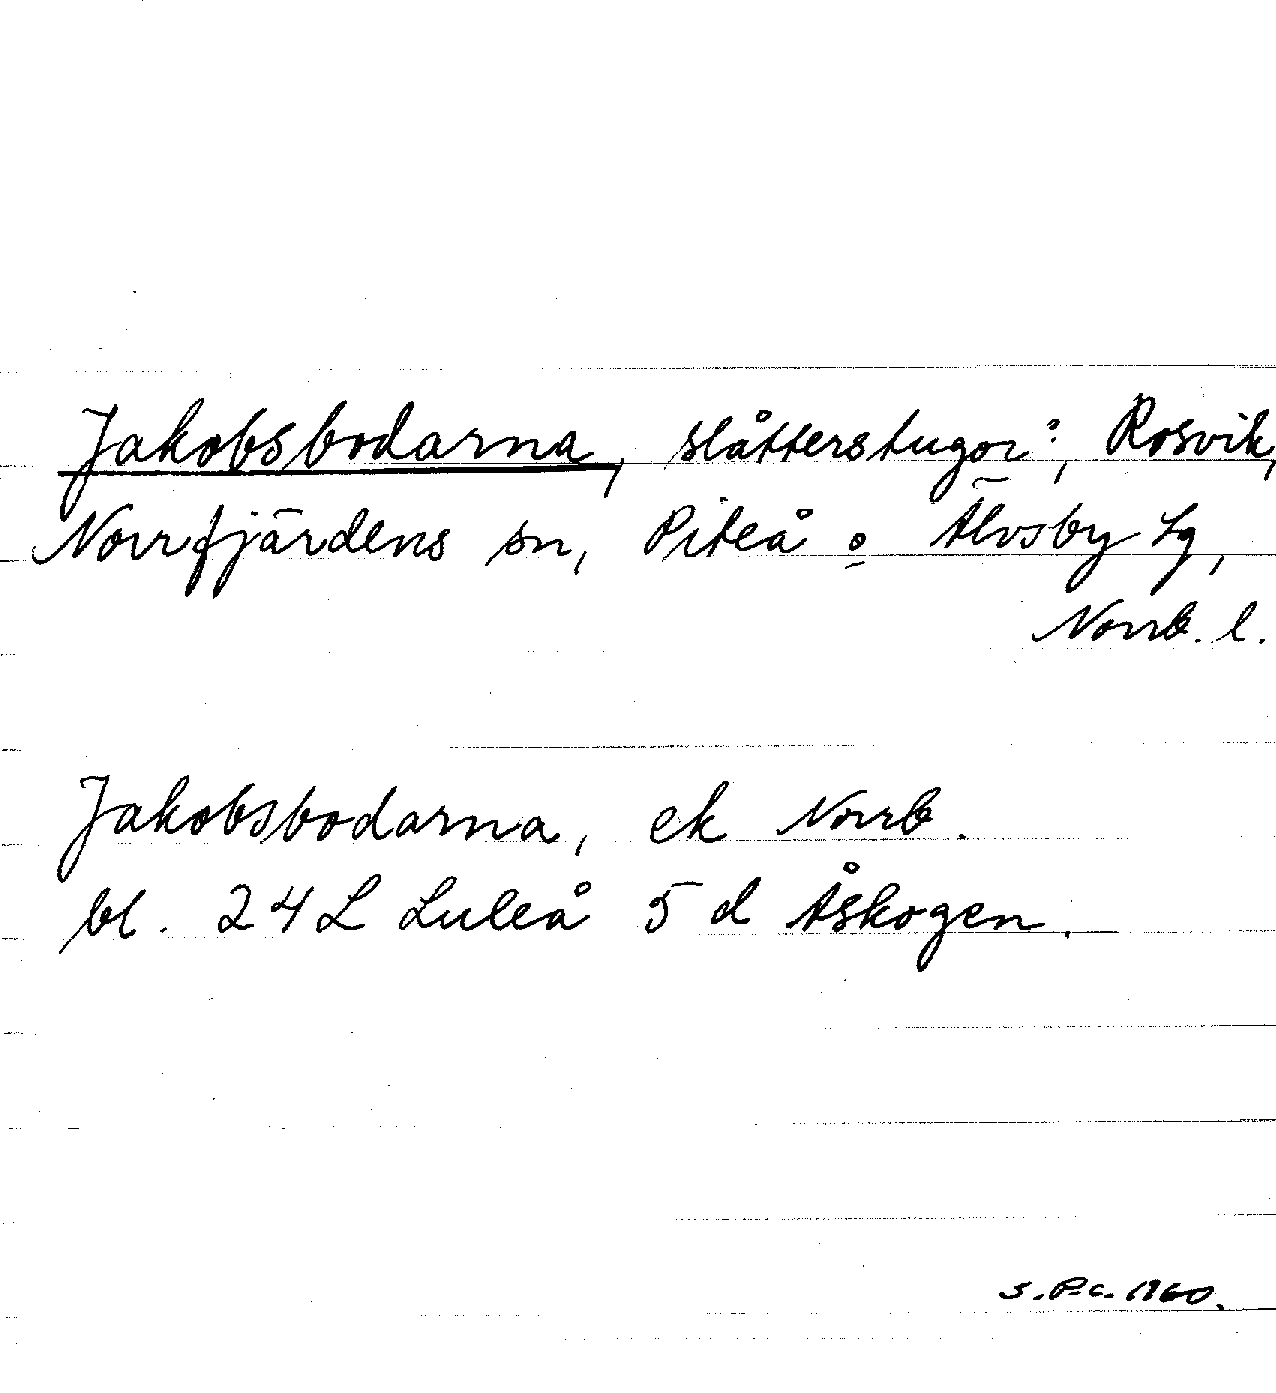 Jakobsbodarna, slåtterstugor:, Rosvik,
Norrfjärdens sn, Piteå o Älvsby tg,
Norrb. l.
Jakobsbodarna, ek Norrb.
bl. 24 L Luleå 5 d Åskogen.
S.P.C. 1960.